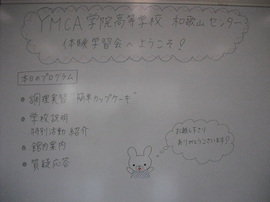 YMCA学院高等学校 和歌山センター
体験学習会へようこそ！
本日のプログラム
• 調理実習 簡単カップケーキ
• 学校説明
特別活動 紹介
• 館内案内
• 質疑応答
お越し下さり
ありがとうございます！